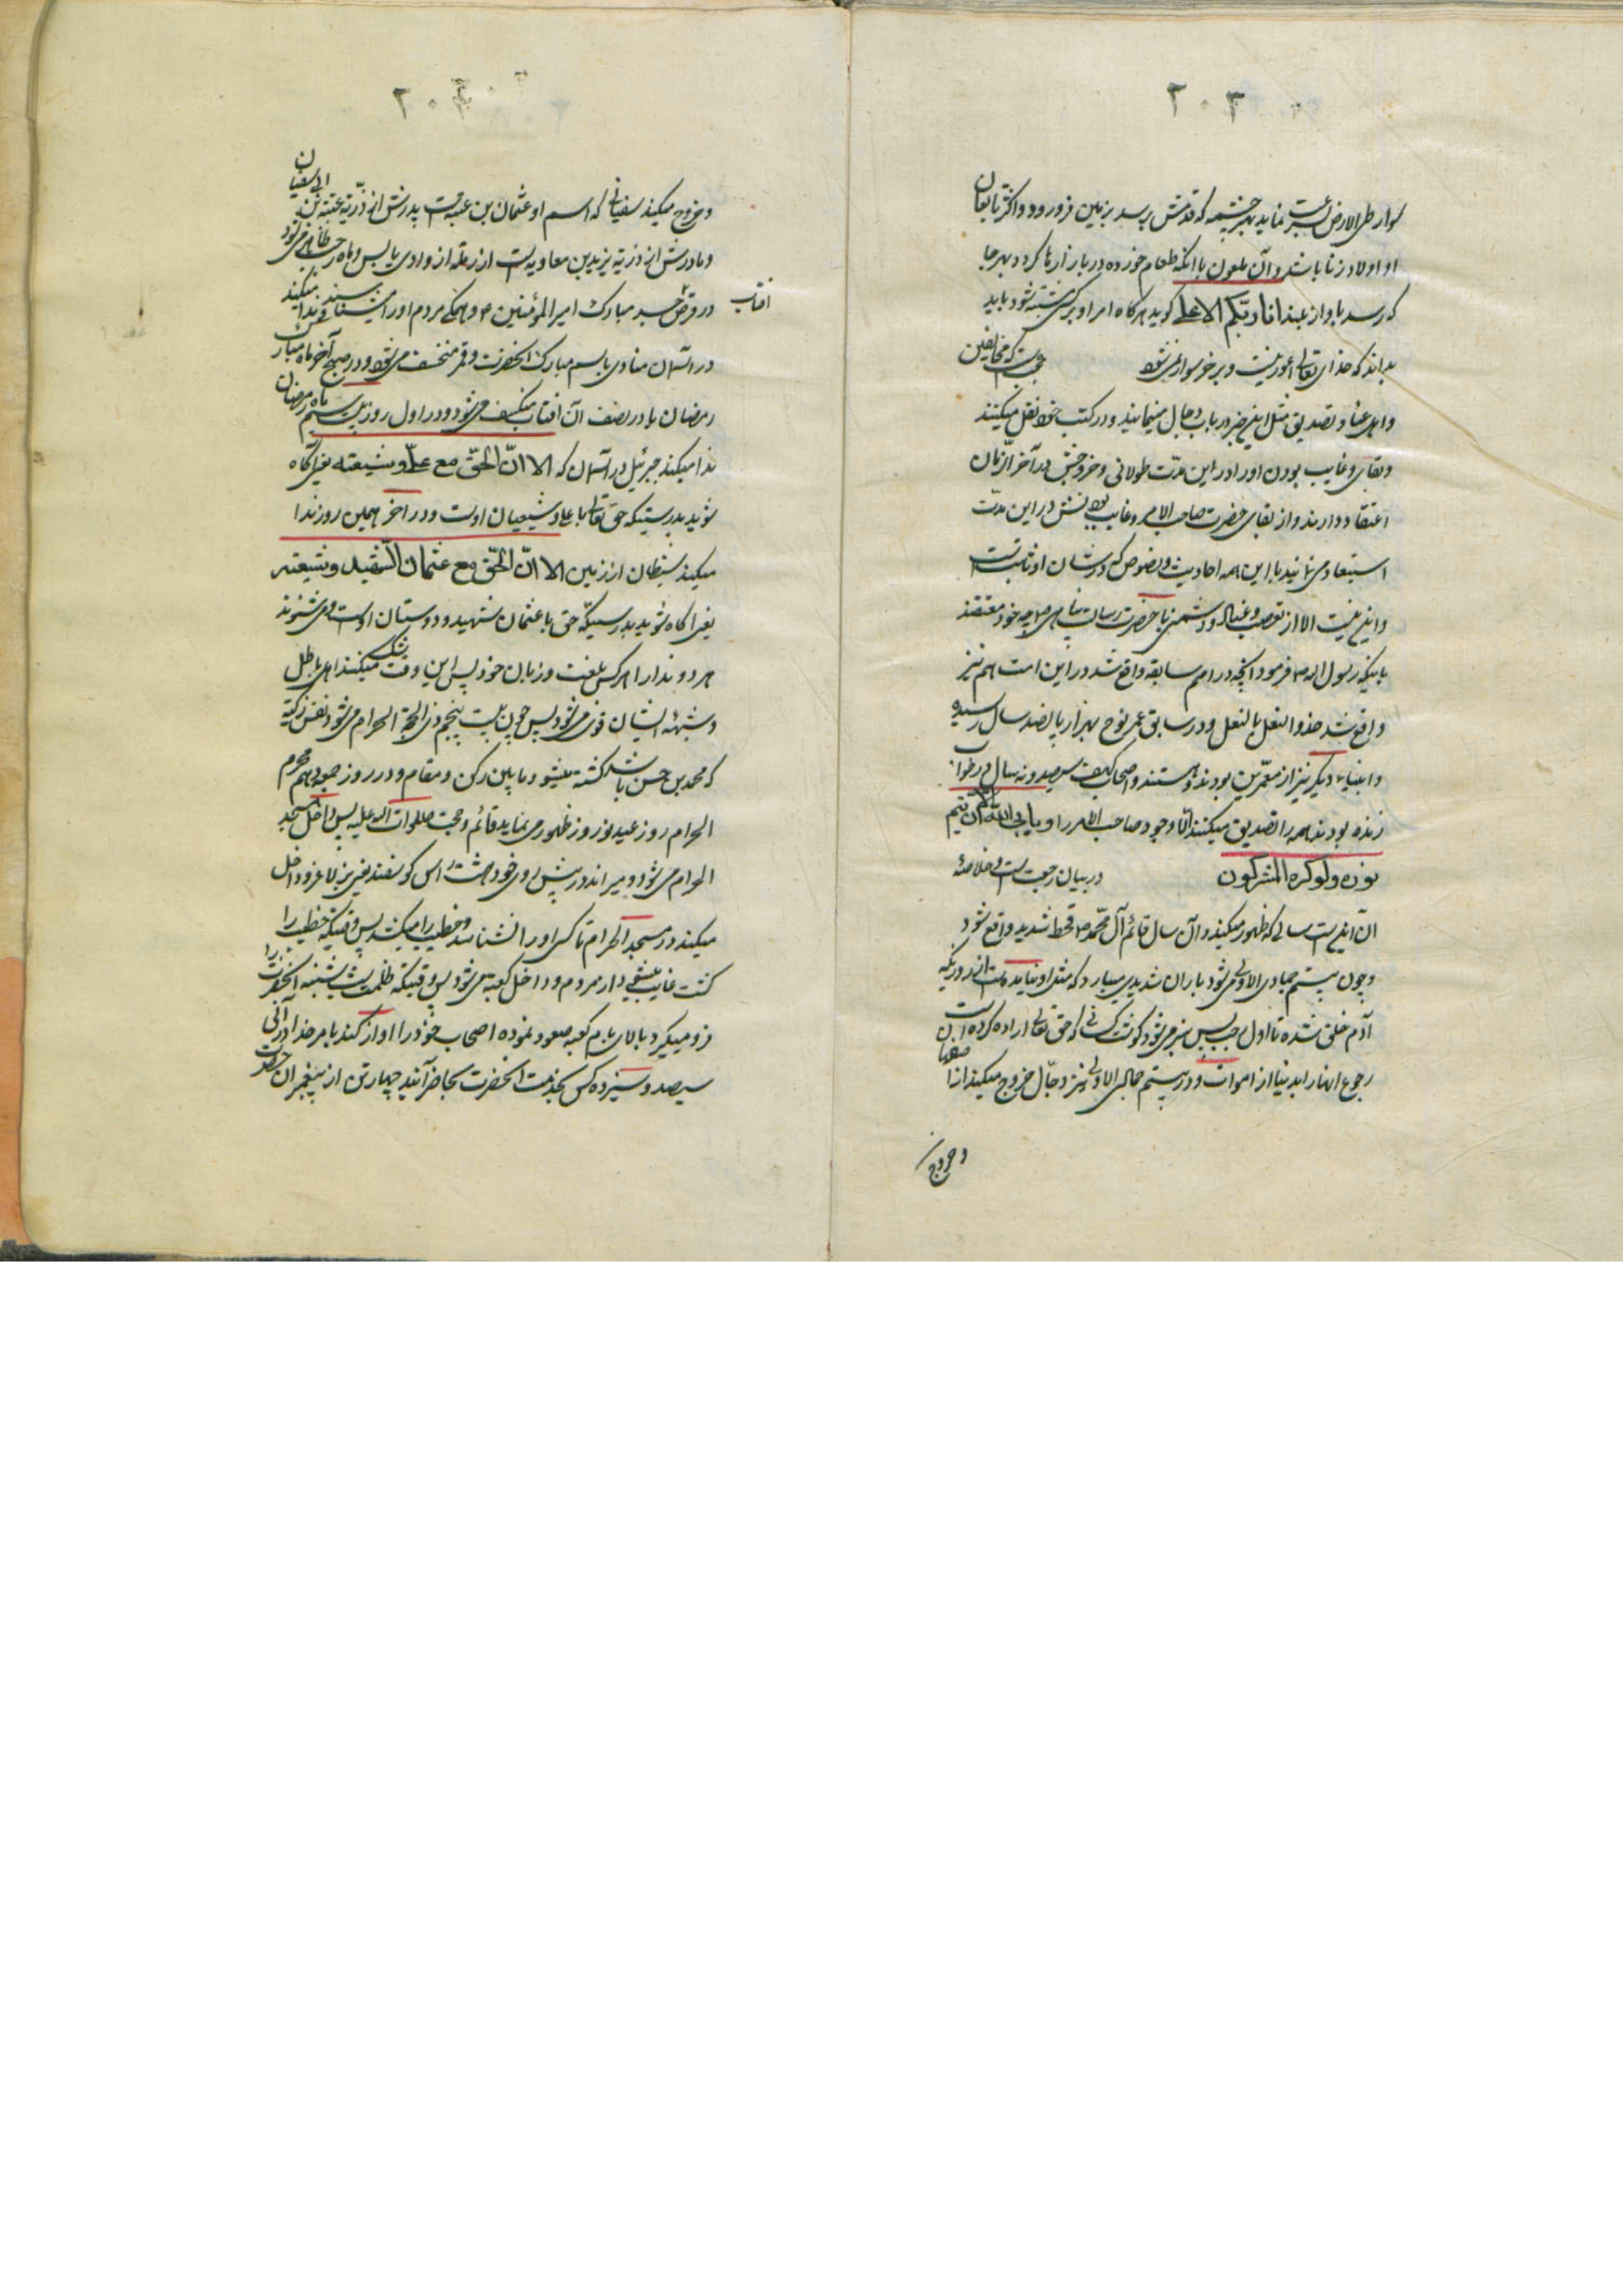 ۲۰۳
او اولاد زنا باشد و آن ملعون با آنکه طعام خورده در بازارها گردد بهر جا
که رسد بآواز بلند انا ربّکم الاعلی گوید هرگاه امر او بر کسی مشتبه شود باید
بداند که خدای تعالی اعور نیست و بر خر سوار نمیشود عجبست که مخالفین
و اهل عناد تصدیق مثل این خبر در باب دجال مینمایند و در کتب خود نقل میکنند
و بقای و غایب بودن او را در این مدّت طولانی و خروجش در آخر الزمان
اعتقاد دارند و از بقای حضرت صاحب الامر و غایب بودنش در این مدّت
استبعاد می نمایند با این همه احادیث و نصوص که در شان او ثابت است
و این نیست الا از تعصب و عناد و دشمنی با حضرت رسالت پناهی ص چه خود معتقدند
باینکه رسول الله ص فرمود آنچه در امم سابقه واقع شد در این امت هم نیز
واقع شد حذو النعل بالنعل و در سابق عمر نوح بهزار پانصد سال رسیده
و انبیاء دیگر نیز از معمّرین بودند و هستند و اصحاب کهف سیصد و نه سال در خواب
زنده بودند همه را تصدیق میکنند الّا وجود صاحب الامر را و یابی الله الّا ان یتمّ
نوره و لو کره المشرکون در بیان رجعت است و خلاصهٔ
آن اینست سالی که ظهور میکند و آن سال قائم آل محمّد ص قحط شدید واقع شود
و چون بیستم جمادی الاولی میشود باران شدیدی میبارد که مثل او نیامده است از روزیکه
آدم خلق شده تا اول رجب پس سبز میشود گوشت کسانی که حق تعالی اراده کرده است
رجوع آنها را بدنیا از اموات و در بیستم جمادی الاولی نیز دجّال خروج میکند از اصفهان
و خروج
۲۰۴
و خروج میکند سفیانی که اسم او عثمان بن عنبسه است پدرش از ذرّیهٔ عتبة بن ابی سفیان
و مادرش از ذرّیهٔ یزید بن معاویه است از رمله از وادی یابس و ماه رجب ظاهر میشود
در قرص آفتاب جسد مبارک امیر المؤمنین ع و همگی مردم او را میشناسند و ندا میکند
در آسمان منادی باسم مبارک آنحضرت و قمر منخسف میشود و در صبح آخر ماه مبارک
رمضان یا در نصف آن آفتاب منکسف میشود و در اول روز بیست سیم ماه رمضان
ندا میکند جبرئیل در آسمان که الا انّ الحقّ مع علیّ و شیعته یعنی آگاه
شوید بدرستیکه حق تعالی با علی و شیعیان اوست و در آخر همین روز ندا
میکند شیطان از زمین الا انّ الحقّ مع عثمان الشهید و شیعته
یعنی آگاه شوید بدرستیکه حق با عثمان شهید و دوستان اوست و میشنوند
هر دو ندا را هر کس بلغت و زبان خود پس این وقت شک میکنند اهل باطل
و شبهه ایشان قوی میشود پس چون بیست پنجم ذی الحجّة الحرام میشود نفس زکیّه
که محمد بن حسن باشد کشته میشود ما بین رکن و مقام و در روز جمعه دهم محرم
الحرام روز عید نوروز ظهور می نماید قائم و حجت صلوات الله علیه پس داخل مسجد
الحرام میشود و میراند در پیش روی خود هشت راس گوسفند یعنی بز لاغر و داخل
میکند در مسجد الحرام تا کسی او را نشناسد و خطیب را میکشد پس وقتیکه خطیب را
کشت غایب میشود از مردم و داخل کعبه میشود پس وقتیکه ظلمت شب شنبه آنحضرت را
فرو میگیرد بالای بام کعبه صعود نموده اصحاب خود را آواز کند بامر خدا در آنی
سیصد و سیزده کس بخدمت آنحضرت بحاضر آیند چهار تن از پیغمبران حضرت